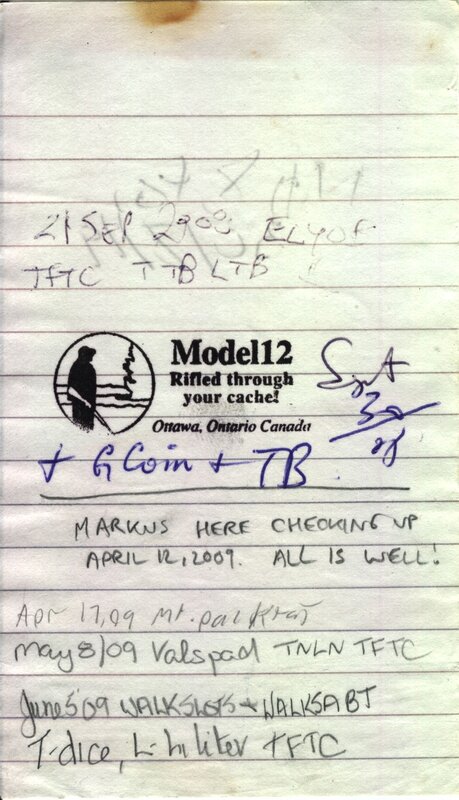 21 SEP 2008 ELYOF
TFTC TTB LTB
Model12
Rifled through
your cache!
Ottawa, Ontario Canada
Sept
30
08
+ G Coin + TB
MARKUS HERE CHECKING UP
APRIL 12, 2009. ALL IS WELL!
Apr 17, 09 Mt.
May 8/09 Valspad TNLN TFTC
June 5 09 WALKSLOTS + WALKSABT
T-dice, L-hiliter TFTC